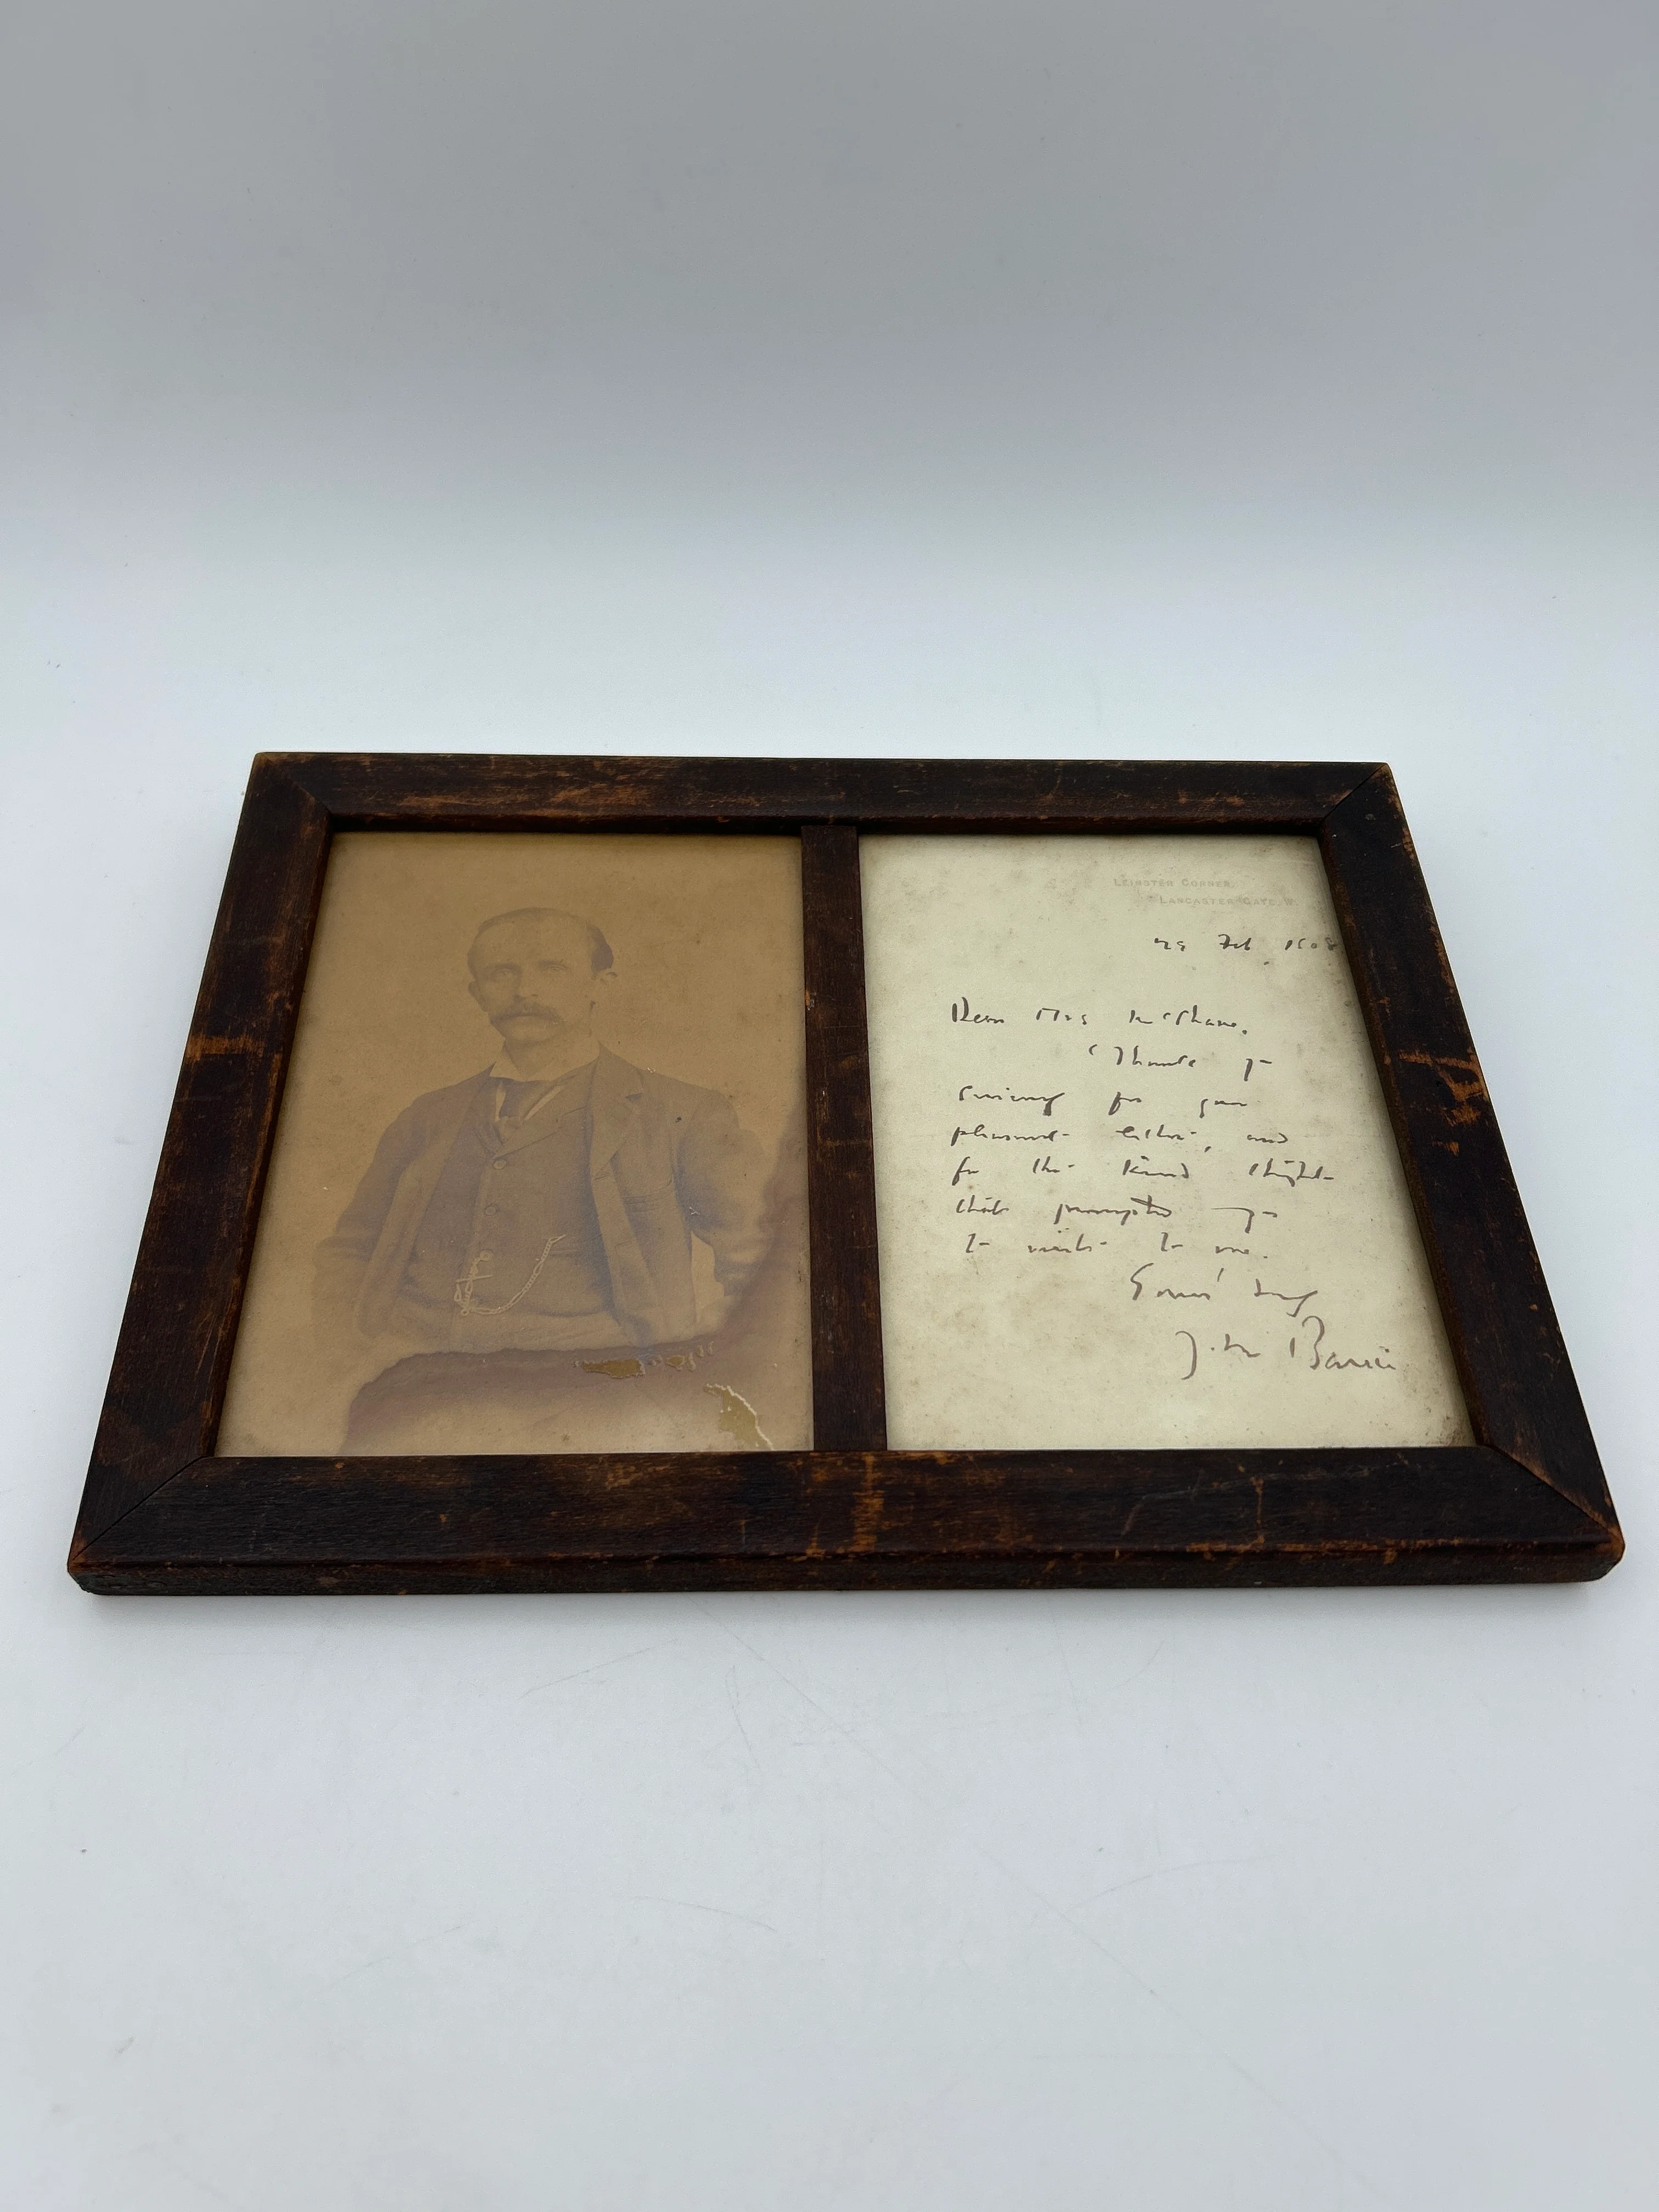 LEINSTER CORNER,
LANCASTER GATE. W.
Feb. 1908
Dear Mrs
Thank you
sincerely for your
pleasant letter, and
for the kind thought
that prompted you
to write to me.
Yours truly
J. M. Barrie